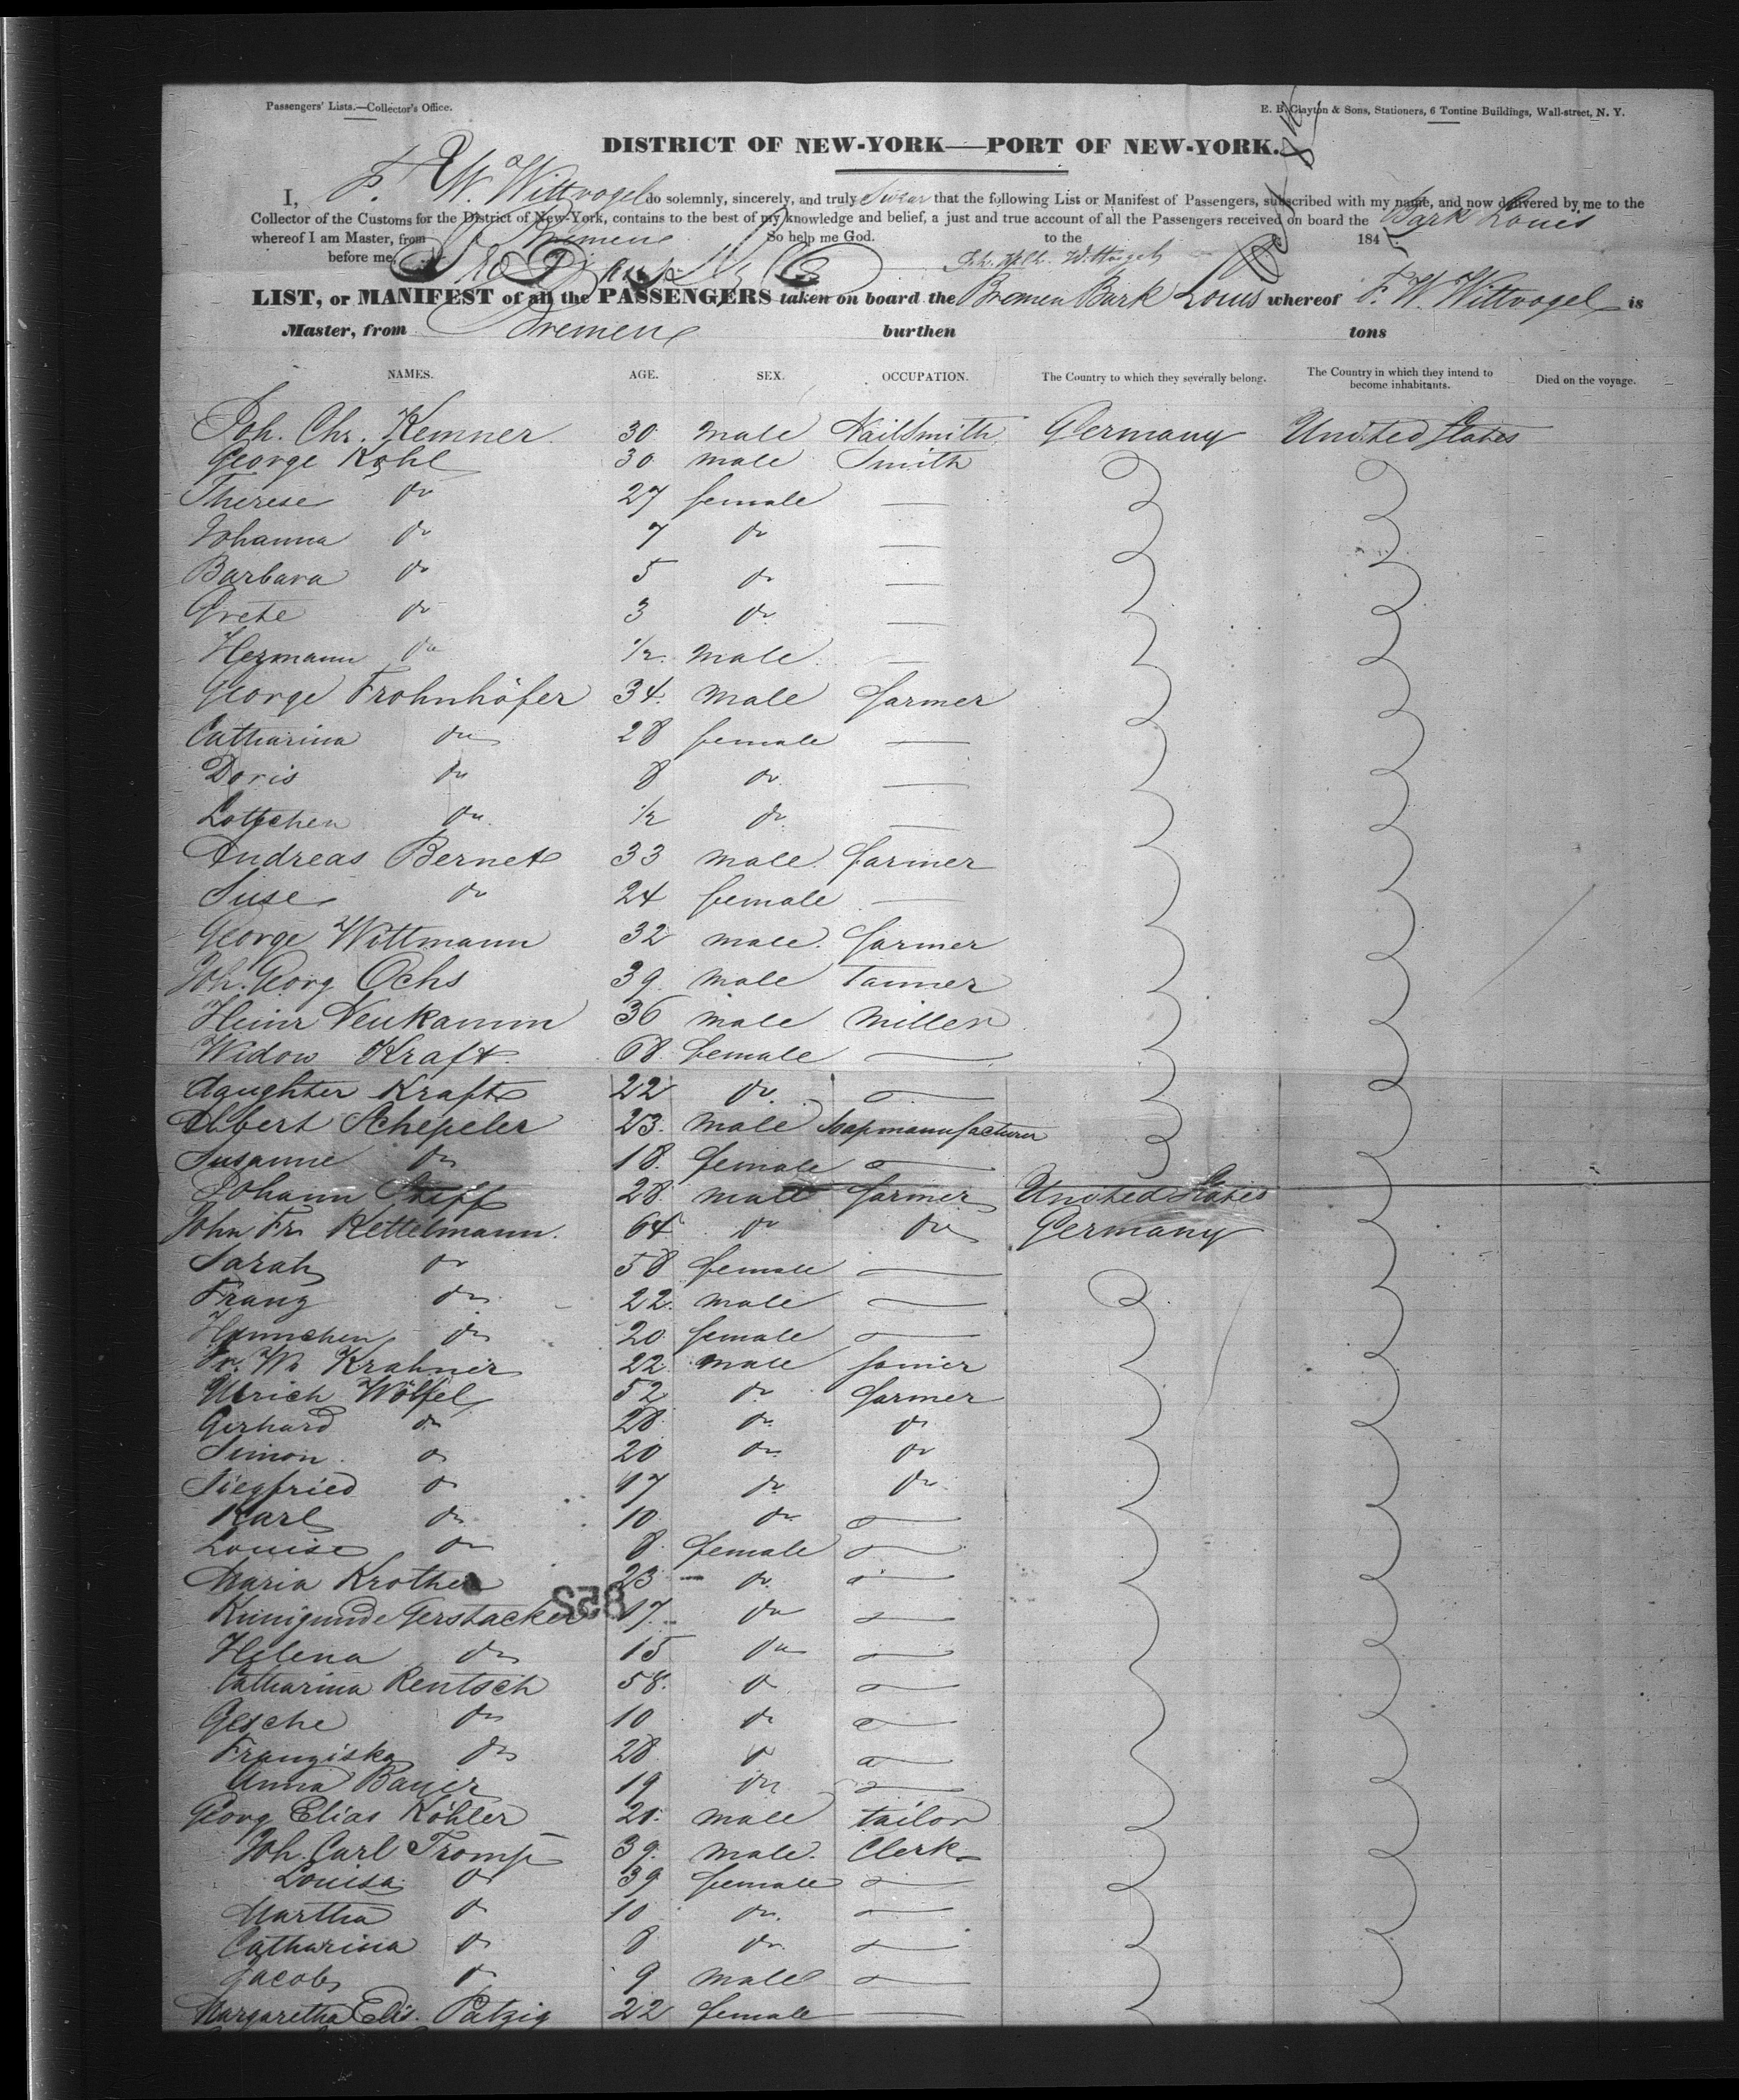 Passengers' Lists.—Collector's Office.
E. B. Clayton & Sons, Stationers, 6 Tontine Buildings, Wall-street, N. Y.
DISTRICT OF NEW-YORK—PORT OF NEW-YORK.
I, F. W. Wittvogel do solemnly, sincerely, and truly swear that the following List or Manifest of Passengers, subscribed with my name, and now delivered by me to the
Collector of the Customs for the District of New-York, contains to the best of my knowledge and belief, a just and true account of all the Passengers received on board the Bark Louis
whereof I am Master, from Bremen So help me God. to the 184
before me,
LIST, or MANIFEST of all the PASSENGERS taken on board the Bremen Bark Louis whereof F. W. Wittvogel is
Master, from Bremen burthen tons
NAMES. AGE. SEX. OCCUPATION. The Country to which they severally belong. The Country in which they intend to become inhabitants. Died on the voyage.
Joh. Chr. Kemner 30 male Nailsmith Germany United States
George Kohl 30 male Smith
Therese do 27 female —
Johanna do 7 do —
Barbara do 5 do —
Grete do 3 do —
Hermann do 1/2 male —
George Frohnhöfer 34 male farmer
Catharina do 28 female —
Doris do 8 do —
Lottchen do 1/2 do —
Andreas Bernet 33 male farmer
Suse do 24 female —
George Wittmann 32 male farmer
Joh. Georg Ochs 39 male Tanner
Heinr Neukamm 36 male Miller
Widow Kraft 68 female —
daughter Kraft 22 do —
Albert Schepeler 23 male Soapmanufacturer
Susanne do 18 female —
Johann 28 male farmer United States
John Fr. Kettelmann. 64 do do Germany
Sarah do 58 female —
Franz do 22 male —
Hannchen do 20 female —
Fr. Wm Krahner 22 male
Ulrich Wölfel 52 do farmer
Gerhard do 28 do do
Simon do 20 do do
Siegfried do 17 do do
Karl do 10 do —
Louise do 8 female —
Maria 23 do —
Kunigunde Gerstacker 17 do —
852
Helena do 15 do —
Catharina Rentsch 58 do —
Gesche do 10 do —
Franziska do 28 do —
Anna Bauer 19 do —
Georg Elias Köhler male tailor
Joh. Carl Tromp 39 male. Clerk
Louisa do 39 female —
Martha do 10 do —
Catharina do 8 do —
Jacob do 9 male —
Margaretha Elis. Patzig 22 female —